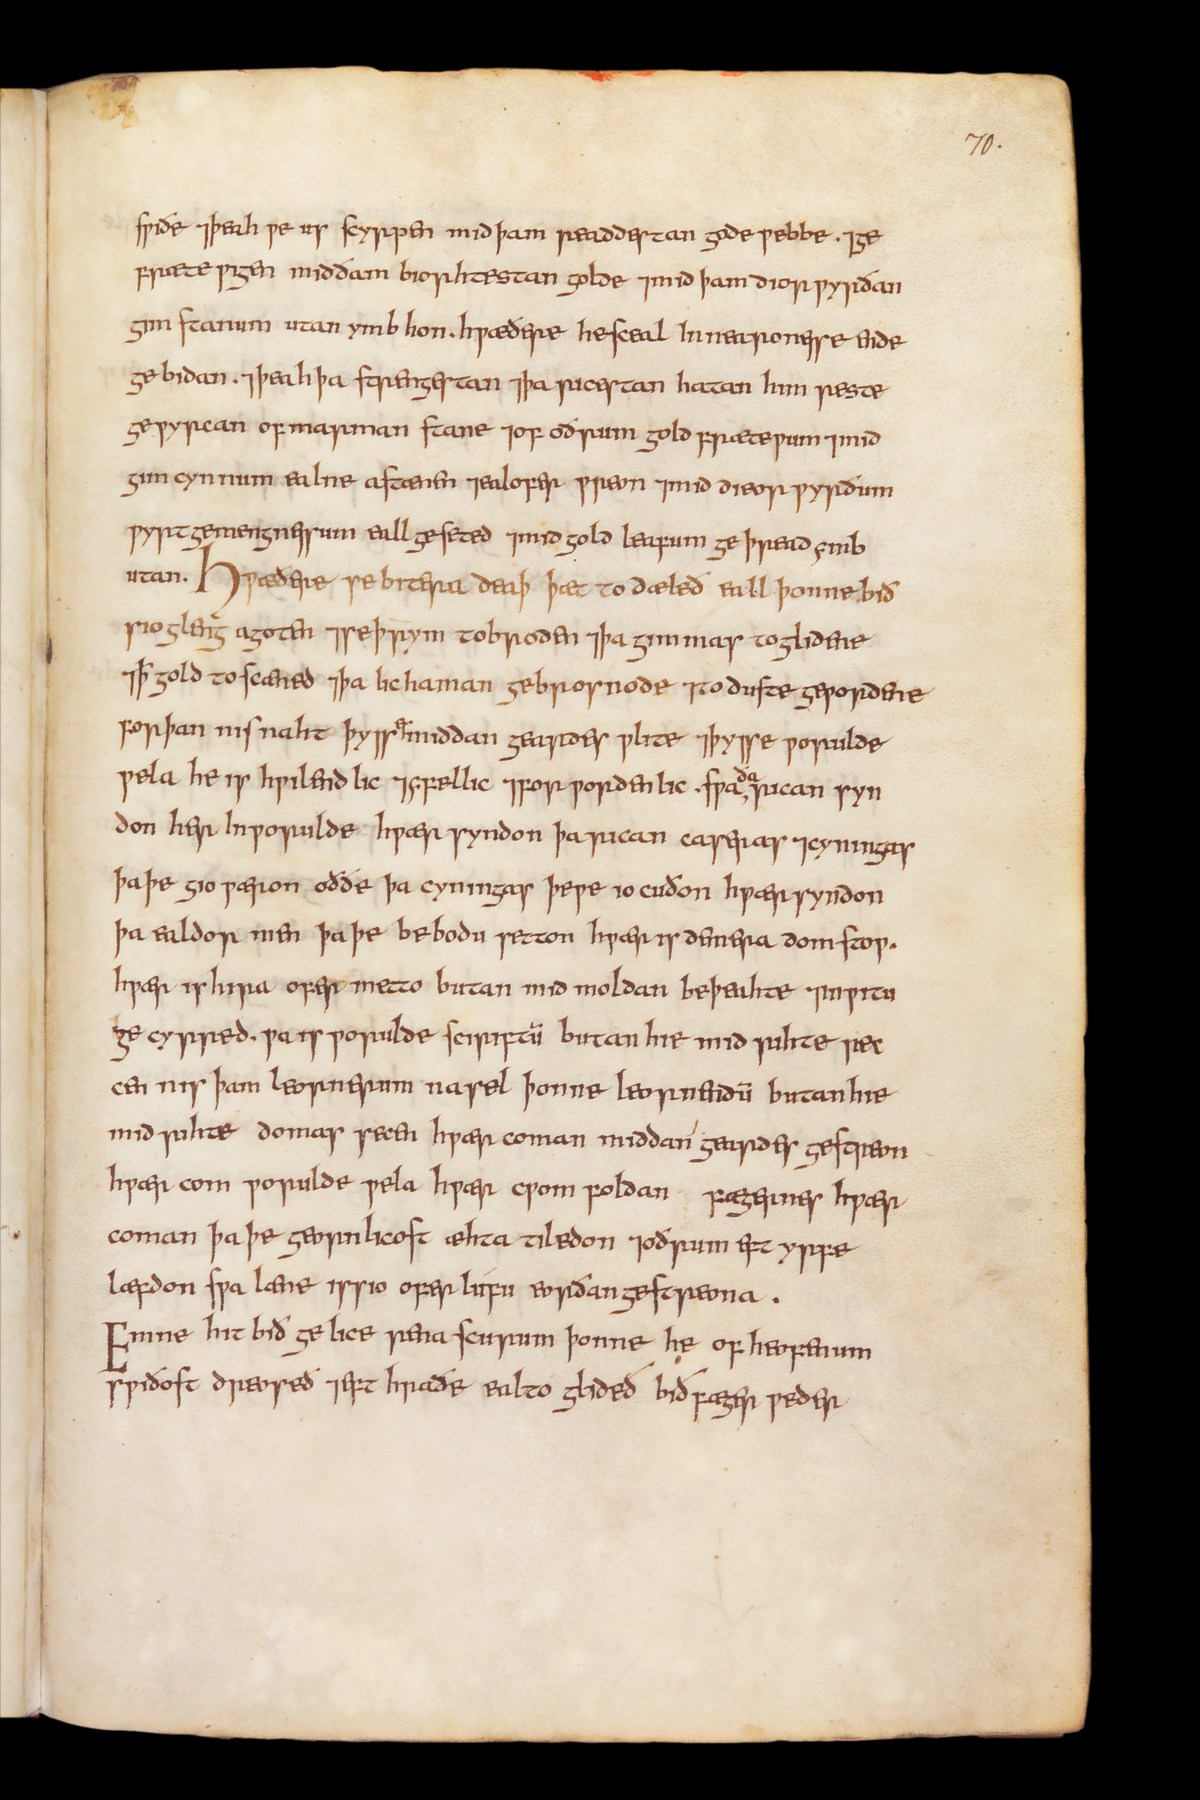 70.
swiðe ⁊ þeah we us scyrpen mid þam readdestan godewebbe. ⁊ ge
frætewigen mid ðam biorhtestan golde ⁊ mid þam diorwyrðan
gimstanum utan ymbhon. hwæðere he sceal in nearonesse ende
gebidan. ⁊ þeah þa strengestan ⁊ þa ricestan hatan him reste
gewyrcan of marmanstane ⁊ of oðrum goldfrætewum ⁊ mid
gimcynnum ealne astæned ⁊ eal ofer wreon ⁊ mid dieorwyrðum
wyrtgemengnessum eall geseted ⁊ mid goldleafum geþread ymb
utan. Hwæðere se bitera deaþ þæt todæleð eall þonne bið
sio gleng agoten ⁊ se þrym tobroden ⁊ þa gimmas toglidene
⁊ þ̄ gold tosceaned ⁊ þa lichaman gebrosnode ⁊ to dufte gewordene
forþan nis naht þysses middangeardes wlite ⁊ þysse worulde
wela he is hwilendlic ⁊ yfellic ⁊ forwordenlic. swa ða rican syn
don her in worulde hwær syndon þa rican caseras ⁊ cyningas
þa þe gio wæron oððe þa cyningas þe we io cuðon hwær syndon
þa ealdormen þa þe bebodu setton hwær is demera domstow.
hwær is hira ofermetto butan mid moldan beþeahte ⁊ in witu
gecyrred. wa is worulde scriftū butan hie mid rihte rec
cen nis þam leornerum na sel þonne leornendū butan hie
mid rihte domas recen hwær coman middangeardes gestreon
hwær com worulde wela hwær cwom foldan fægernes hwær
coman þa þe geornlicost æhta tiledon ⁊ oðrum eft yrfe
læfdon swa læne is sio oferlufu eorðan gestreona.
Emne hit bið gelice rena scurum þonne he of heofenum
swiðost dreoseð ⁊ eft hraðe eal toglideð bið fæger weder